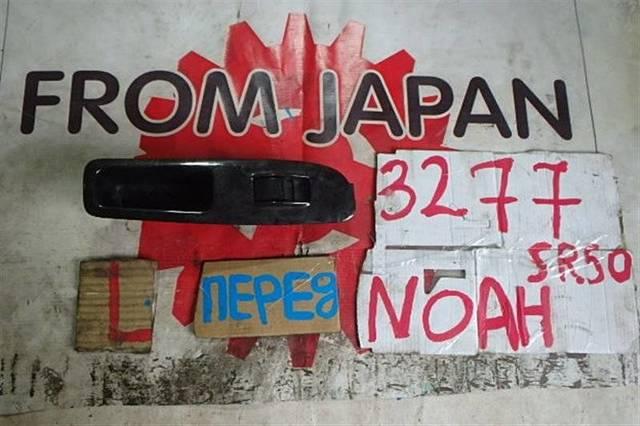 FROM JAPAN
3277
SR50
L ПЕРЕД NOAH